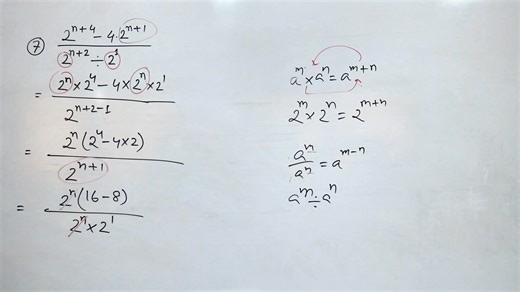 ⑦ (2^{n+4} - 4·2^{n+1}) / (2^{n+2} ÷ 2^1)
= (2^n × 2^4 - 4 × 2^n × 2^1) / 2^{n+2-1}
= 2^n (2^4 - 4×2) / 2^{n+1}
= 2^n (16 - 8) / (2^n × 2^1)
a^m × a^n = a^{m+n}
2^m × 2^n = 2^{m+n}
a^n / a^n = a^{m-n}
a^m ÷ a^n